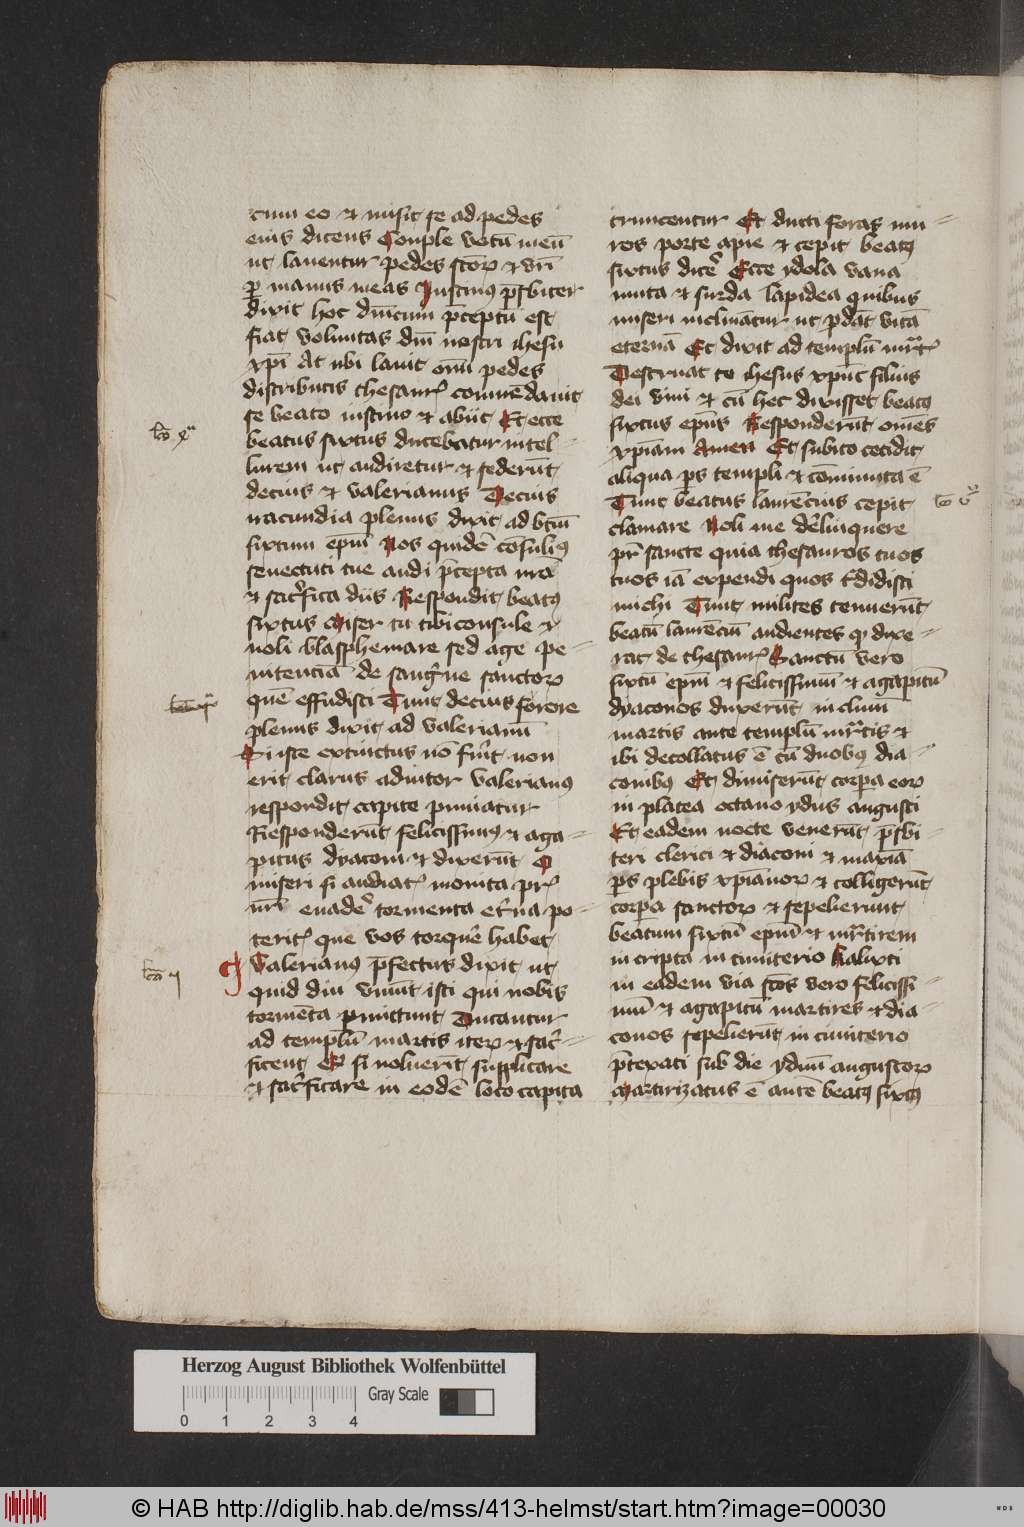 cum eo ⁊ misit se ad pedes
eius dicens Conple votū meū
ut laventur pedes sctoꝝ ⁊ vrī
ꝑ manus meas Iustinꝰ prꝭbiter
dixit hoc dnīcum p̄ceptū est
fiat voluntas dnī nostri ihesu
xpī At ubi lavit omnī pedes
distributis thesaurꝭ commēdavit
se beato iustino ⁊ abiit Et ecce
beatus sixtus ducebatur in tel-
lurem ut audiretur ⁊ sederūt
decius ⁊ valerianus Decius
iracundia plenus dixit ad btm̄
sixtum epm̄ Nos quidē cōsulimꝰ
senectuti tue audi p̄cepta nrā
⁊ sacͥfica diis Respondit beatꝰ
sixtus Miser tu tibi consule ⁊
noli blasphemare sed age pe-
nitenciā de sangͥne sanctoꝝ
quē effudisti Tunc decius forore
plenus dixit ad valerianū
Si iste extinctus nō fuīt non
erit clarus adiutor valerianꝰ
respondit capite puniatur
Responderūt felicissimꝰ ⁊ aga-
pitus dyaconi ⁊ dixerūt O
miseri si audiatꝭ monita prꝭ
nrī evadēͤ tormenta etͥna po-
teritꝭ que vos torquēͤ habet
Valerianꝰ p̄fectus dixit ut
quid diu vivūt isti qui nobis
tormēta ꝓmittunt Ducantur
ad templū martis iteꝝ ⁊ sacͥ-
ficent Et si noluerīt supplicare
⁊ sacͥficare in eodē loco capita
truncentur Et ducti foras mu-
ros porte apie ⁊ cepit beatꝰ
sixtus dicēͤ Ecce ydola vana
muta ⁊ surda lapidea quibus
miseri inclinātur ut ꝑdāt vitā
eternā Et dixit ad templum mrͣtꝭ
Destruat te ihesus xpūc filius
dei vivi ⁊ cū hec dixisset beatꝰ
sixtus epūs Responderūt omēs
xpīani Amen Et subito cecidit
aliqua ꝑs templi ⁊ cōminuta ē
Tunc beatus laurēcius cepit
clamare Noli me dͤelinquere
pr̄ sancte quia thesauros tuos
tuos iā expendi quos tͣdidisti
michi Tunc milites tenuerūt
beatū laurēciū audientes qꝫ dixe-
rat de thesaurꝭ Sanctū vero
sixtū epm̄ ⁊ felicissimū ⁊ agapitū
dyaconos duxerūt in clivū
martis ante templū mrͣtis ⁊
ibi decollatus ē cū duobꝰ dia-
conibꝰ Et dimiserūt corpa eoꝝ
in platea octavo ydus augusti
Et eadem nocte venerūt prꝭbi-
teri clerici ⁊ diaconi ⁊ maxīā
ꝑs plebis xpīanoꝝ ⁊ colligerūt
corpa sanctoꝝ ⁊ sepelierunt
beatum sixtū epm̄ ⁊ mrͣtirem
in cripta in cimiterio Kalixti
in eadem via sctos vero felicissi-
mū ⁊ agapitū martires ⁊ dia-
conos sepelierūt in cimiterio
p̄textati sub die yduū augustoꝝ
Martirizatus ē autē beatꝰ sixtꝰ
Herzog August Bibliothek Wolfenbüttel
Gray Scale
0 1 2 3 4
© HAB http://diglib.hab.de/mss/413-helmst/start.htm?image=00030